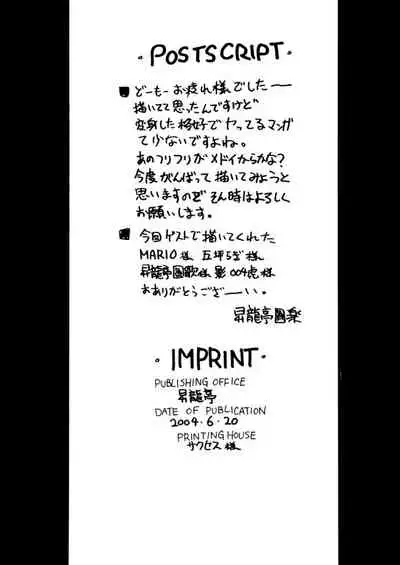 ・POSTSCRIPT・
■ どーもーお疲れ様でしたー
描いてて思ったんですけど
変身した格好でヤッてるマンガ
て少ないですよね。
あのフリフリがメドイからかな?
今度がんばって描いてみようと
思いますのでそん時はよろしく
お願いします。
■ 今回ゲストで描いてくれた
MARIO様 五坪らぎ様
昇龍亭圓歌様 影004虎様
おありがとうござーーい。
昇龍亭圓楽
・IMPRINT・
PUBLISHING OFFICE
昇龍亭
DATE OF PUBLICATION
2004・6・20
PRINTING HOUSE
サクセス様